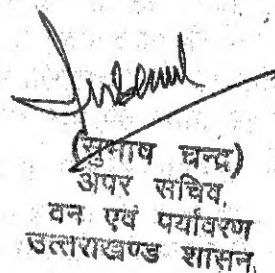 (सुभाष चन्द्र)
अपर सचिव,
वन एवं पर्यावरण
उत्तराखण्ड शासन